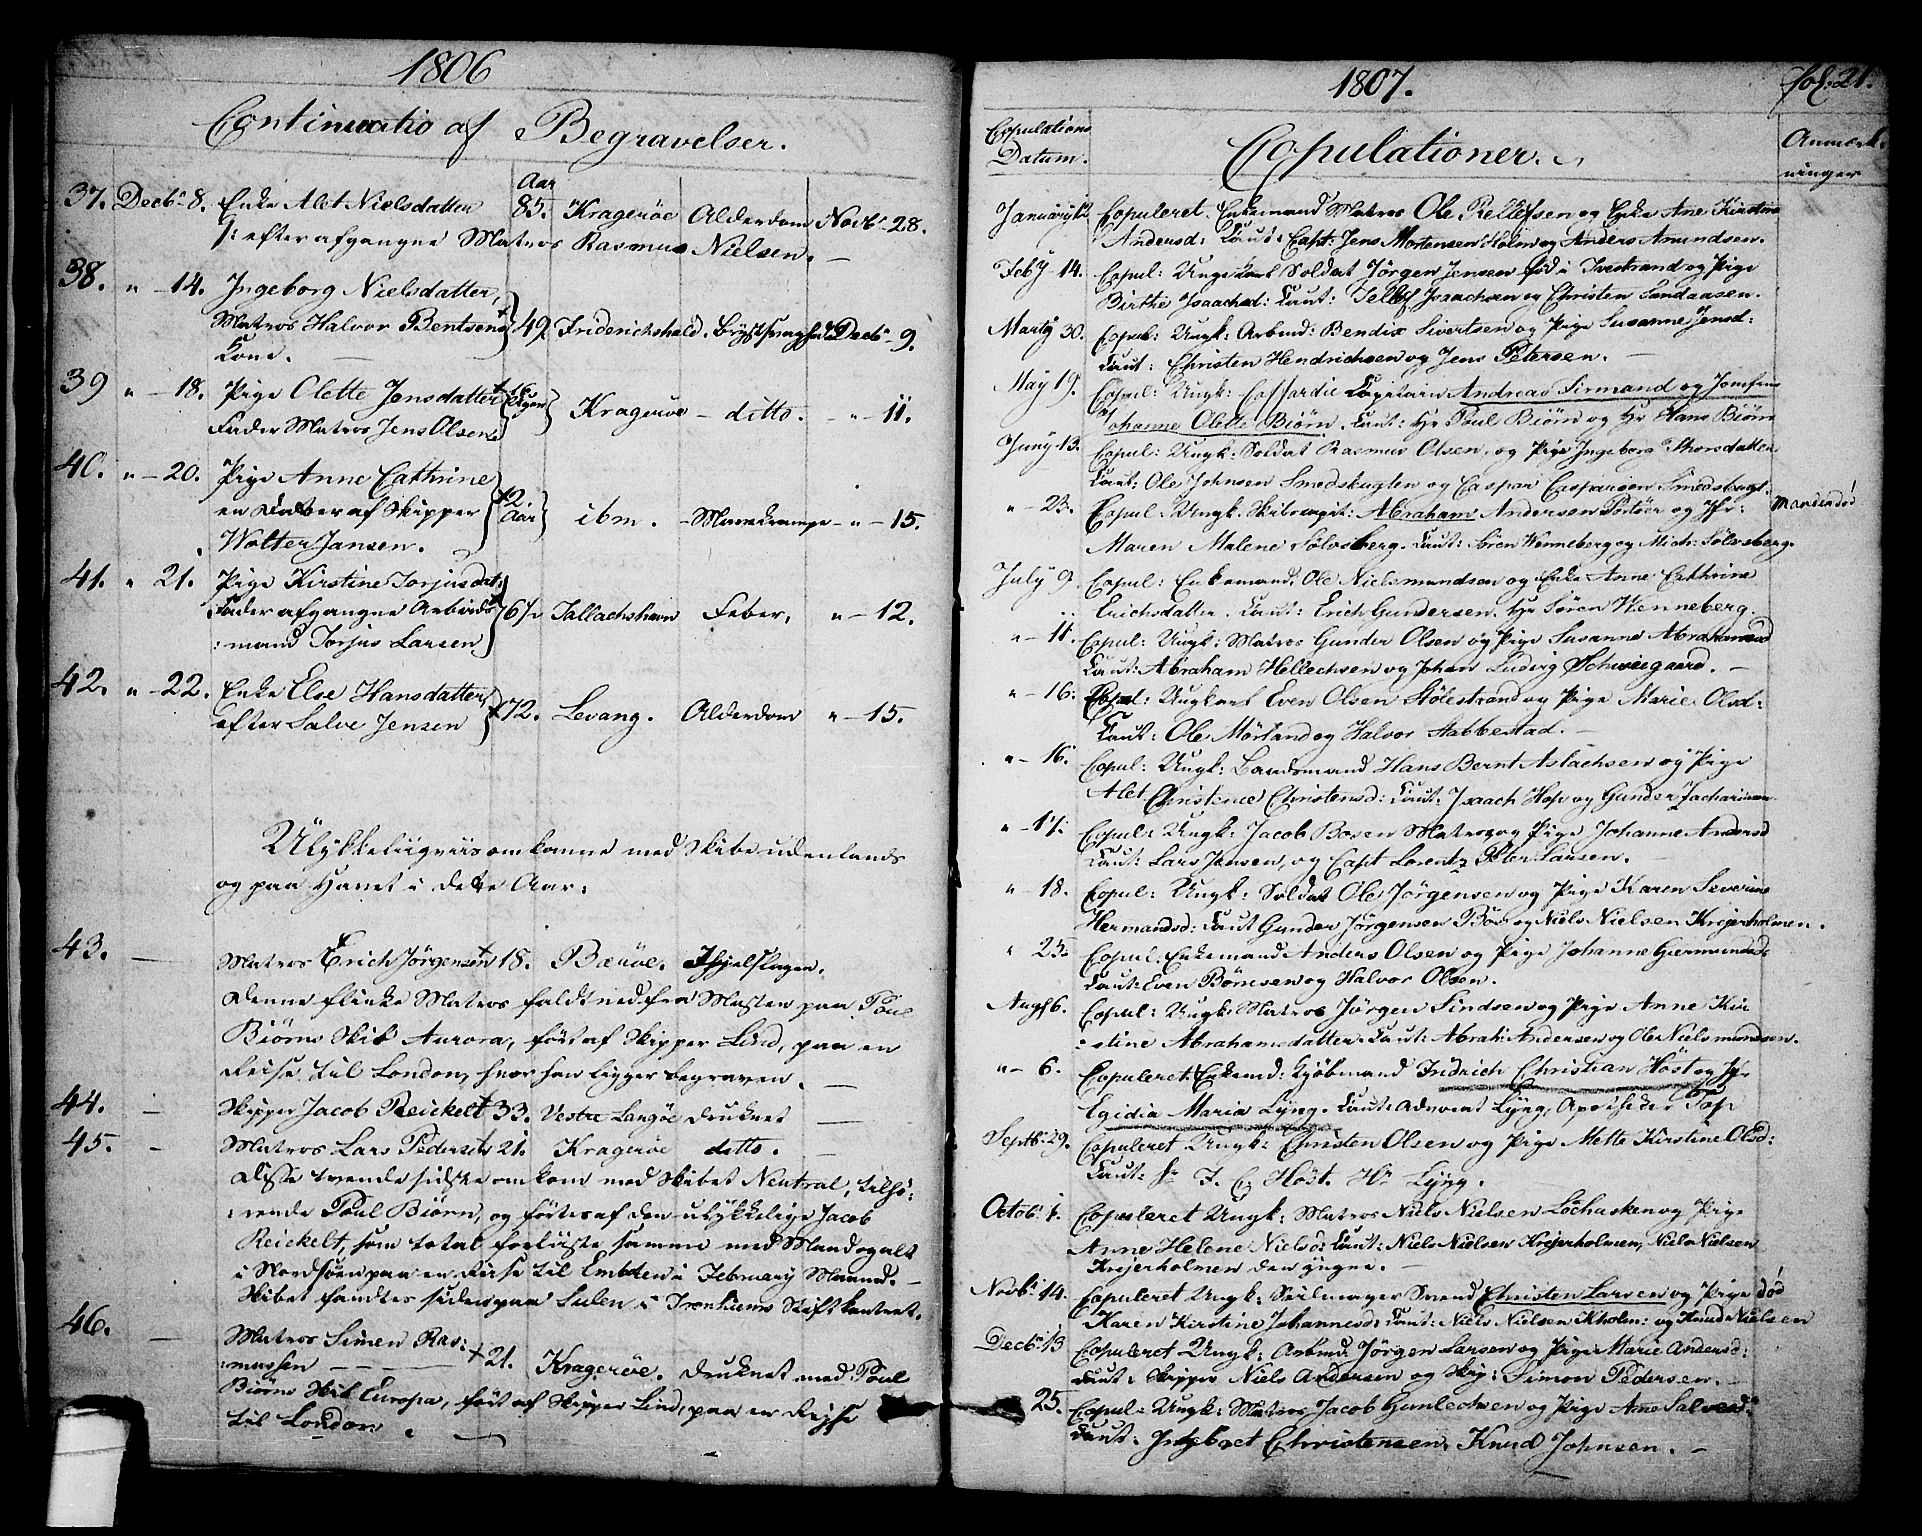 1806
Continuatio af Begravelser.
Aar
37. Decbr 8. Enke Alet Nielsdatter 85. Kragerøe Alderdom Novbr 28.
/: efter afgangne Matros Rasmus Nielsen. —
38. " — 14. Ingeborg Nielsdatter,
Matros Halvor Bentsens 49 Friderichshald. Decbr 9.
Kone. —
39 " — 18. Pige Olette Jensdatter
Fader Matros Jens Olsen Kragerøe — ditto. " — 11.
40. " — 20. Pige Anne Cathrine
en Datter af Skipper 2 Aar ibm. — Mavekrampe " — 15.
Wolter Jansen.
41. " 21. Pige Kirstine Torjusdat:
Fader afgangne Arbeids 6½ Tallachshavn Feber, " — 12.
:mand Torjus Larsen
42. " — 22. Enke Else Hansdatter,
efter Salve Jensen 72. Levang. Alderdom " — 15.
Ulykkeligviis omkomne med Skibe udenlands
og paa Havet i dette Aar:
43. — Matros Erich Jörgensen + 18. Bærøe. Ihjelslagen.
Denne flinke Matros faldt ned fra Masten paa Poul
Biørns Skib Aurora, ført af Skipper Lind, paa en
Reise til London, hvor han ligger begraven. —
44. — Skipper Jacob Reickelt + 33. Vestre Langøe druknet —
45. — Matros Lars Pedersen 21. Kragerøe ditto. —
Disse tvende sidste omkom med Skibet Neutral, tilhø:
:rende Poul Biørn, og førtes af den ulykkelige Jacob
Reickelt, som total forliiste samme med Mand og alt
i Nordsøen paa en Reise til Embden i February Maaned. —
Skibet fandtes siden paa Sulen i Tronhiems Stift kantret.
46. — Matros Simen Ras:
:mussen — — — + 21. Kragerøe. druknet med Poul
Biørns Skib Europa, ført af Skipper Lind, paa en Reise
til London.
1807. fol: 21.
Copulations
Datum. Copulationer. Anmærk-
ninger
January 12 Copuleret. Enkemand Matros Ole Rellefsen og Enke Ane Kirstine
Andersd: Caut: Capt: Jens Mortensen Holm og Anders Amundsen.
Feby 14. Copul: Ungekarl Soldat Jørgen Jensen fød i Tvestrand og Pige
Birthe Isaachsd: Caut: Tellef Isaachsen og Christen Sandaasen.
Marty 30. Copul: Ungk: Arbmd: Bendix Sivertsen og Pige Susanne Jensd:
Caut: Christen Hendrichsen og Jens Petersen. —
May 19. Copul: Ungk: Coffardie Capitain Andreas Sirmand og Jomfrue
Johanne Olette Biørn. Caut: Hr Poul Biørn og Hr Hans Biørn
Juny 13. Copul: Ungk: Soldat Rasmus Olsen, og Pige Ingeborg Thorsdatter
Caut: Ole Johnsen Smedskuglen og Caspar Caspersen Smedsbugt.
" — 23. Copul. Ungk. Skibscapit: Abraham Andersen Portøer og Jfr: Manden død
Maren Malene Sølvsberg. Caut: Søren Wenneberg og Mich: Sølvsberg.
July 9. Copul: Enkemand: Ole Nielsmundsen og Enke Anne Cathrine
Erichsdatter. Caut: Erich Gundersen. Hr Søren Wenneberg.
" — 11. Copul: Ungk: Matros Gunder Olsen og Pige Susanne Abrahamsd
Caut: Abraham Hellechsen og Johan Ludvig Schweegaard. —
" — 16. Copul: Ungkarl Even Olsen Stölestrand og Pige Marie Olsd:
Caut: Ole Mørland og Halvor Stabbestad. —
" — 16. Copul: Ungk: Bandsmand Hans Bernt Aslachsen og Pige
Alet Christence Christensd: Caut: Isaach Hop og Gunder Zachariasen
" — 17. Copul: Ungk: Jacob Bosen Matros og Pige Johanne Andersd
Caut: Lars Jensen, og Capt Lorentz Peter Larsen.
" — 18. Copul: Ungk: Soldat Ole Jørgensen og Pige Karen Severine
Hermandsd: Caut Gunder Jørgensen Bøe og Niels Nielsen Krejerholmen.
" 25. Copul. Enkemand Anders Olsen og Pige Johanne Giermundsd:
Caut: Even Börresen og Halvor Olsen.
Augst 6. Copul: Ungk: Matros Jørgen Sindsen og Pige Anne Kir
:stine Abrahamsdatter. Caut: Abrah: Andersen og Ole Nielsmundsen.
" — 6. Copuleret. Enkemd: Kjøbmand Fridrich Christian Höst og Jfr
Egidia Maria Lyng. Caut: Advocat Lyng, Apotheker Top
Septbr 29. Copuleret Ungk: Christen Olsen og Pige Mette Kirstine Olsd:
Caut: Hr F. C. Höst. Hr Lyng.
Octobr 1. Copuleret Ungk: Matros Niels Nielsen Löchasken og Pige
Anne Helene Nielsd: Caut: Niels Nielsen Krejerholmen, Niels Nielsen
Krejerholmen den yngre. —
Novbr 14. Copuleret Ungk: Seilmager Svend Christen Larsen og Pige død
Karen Kirstine Johannesd: Caut: Niels Nielsen Kholm: og Knud Nielsen
Decbr 13 Copuleret Ungk: Arbmd: Jörgen Larsen og Pige Marie Andersd:
Caut. Skipper Niels Andersen og Skip: Simon Pedersen. —
25. Copul: Ungk: Matros Jacob Gunlechsen og Pige Anne Salvesd:
Caut. Ingebret Christensen. Knud Johnsen. —